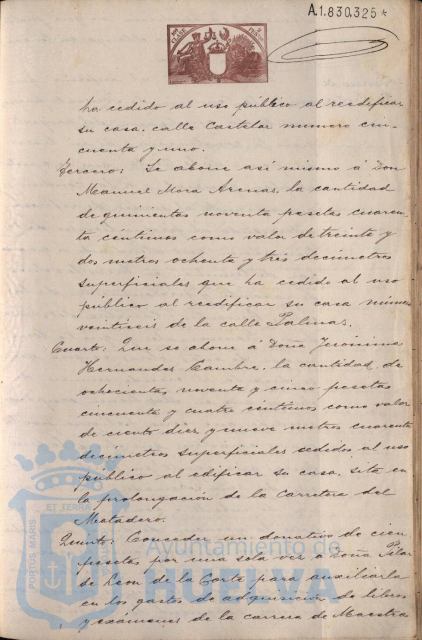 A.1.830.325*
ha cedido al uso público al reedificar
su casa, calle Castelar numero cin-
cuenta y uno.
Tercero: Se abone asi mismo á Don
Manuel Mora Arenas, la cantidad
de quinientas noventa pesetas cuaren-
ta céntimos como valor de treinta y
dos metros ochenta y tres decimetros
superficiales que ha cedido al uso
público al reedificar su casa número
veintiseis de la calle Palmas.
Cuarto: Que se abone á Doña Jeronima
Hernandez Cambre, la cantidad de
ochocientas noventa y cinco pesetas
cincuenta y cuatro céntimos como valor
de ciento diez y nueve metros cuarenta
decimetros superficiales cedidos al uso
público al edificar su casa, sita en
la prolongación de la Carretera del
Matadero.
Quinto: Conceder un donativo de cien
pesetas por una sola vez á Doña Pilar
de Leon de la Corte para auxiliarla
en los gastos de adquisición de libros
y exámenes de la carrera de Maestra
PORTUS MARIS
ET TERRAE
Ayuntamiento de
HUELVA